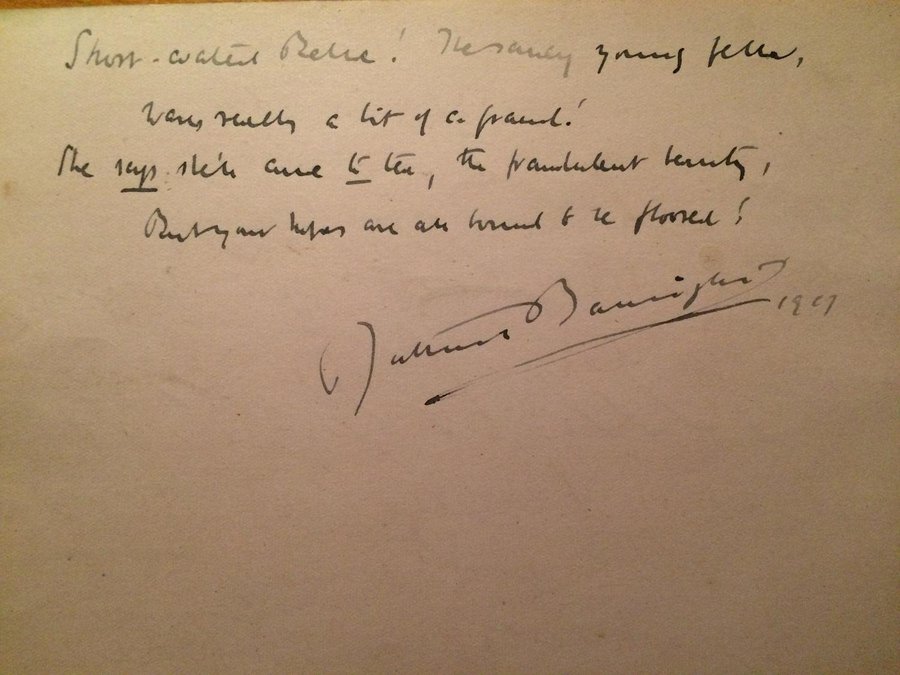 Short-coated Belle! The saucy young fella,
Was really a bit of a fraud!
She says she'll come to tea, the fraudulent beauty,
But your hopes are all bound to be floored!
Bairnsfather 1917